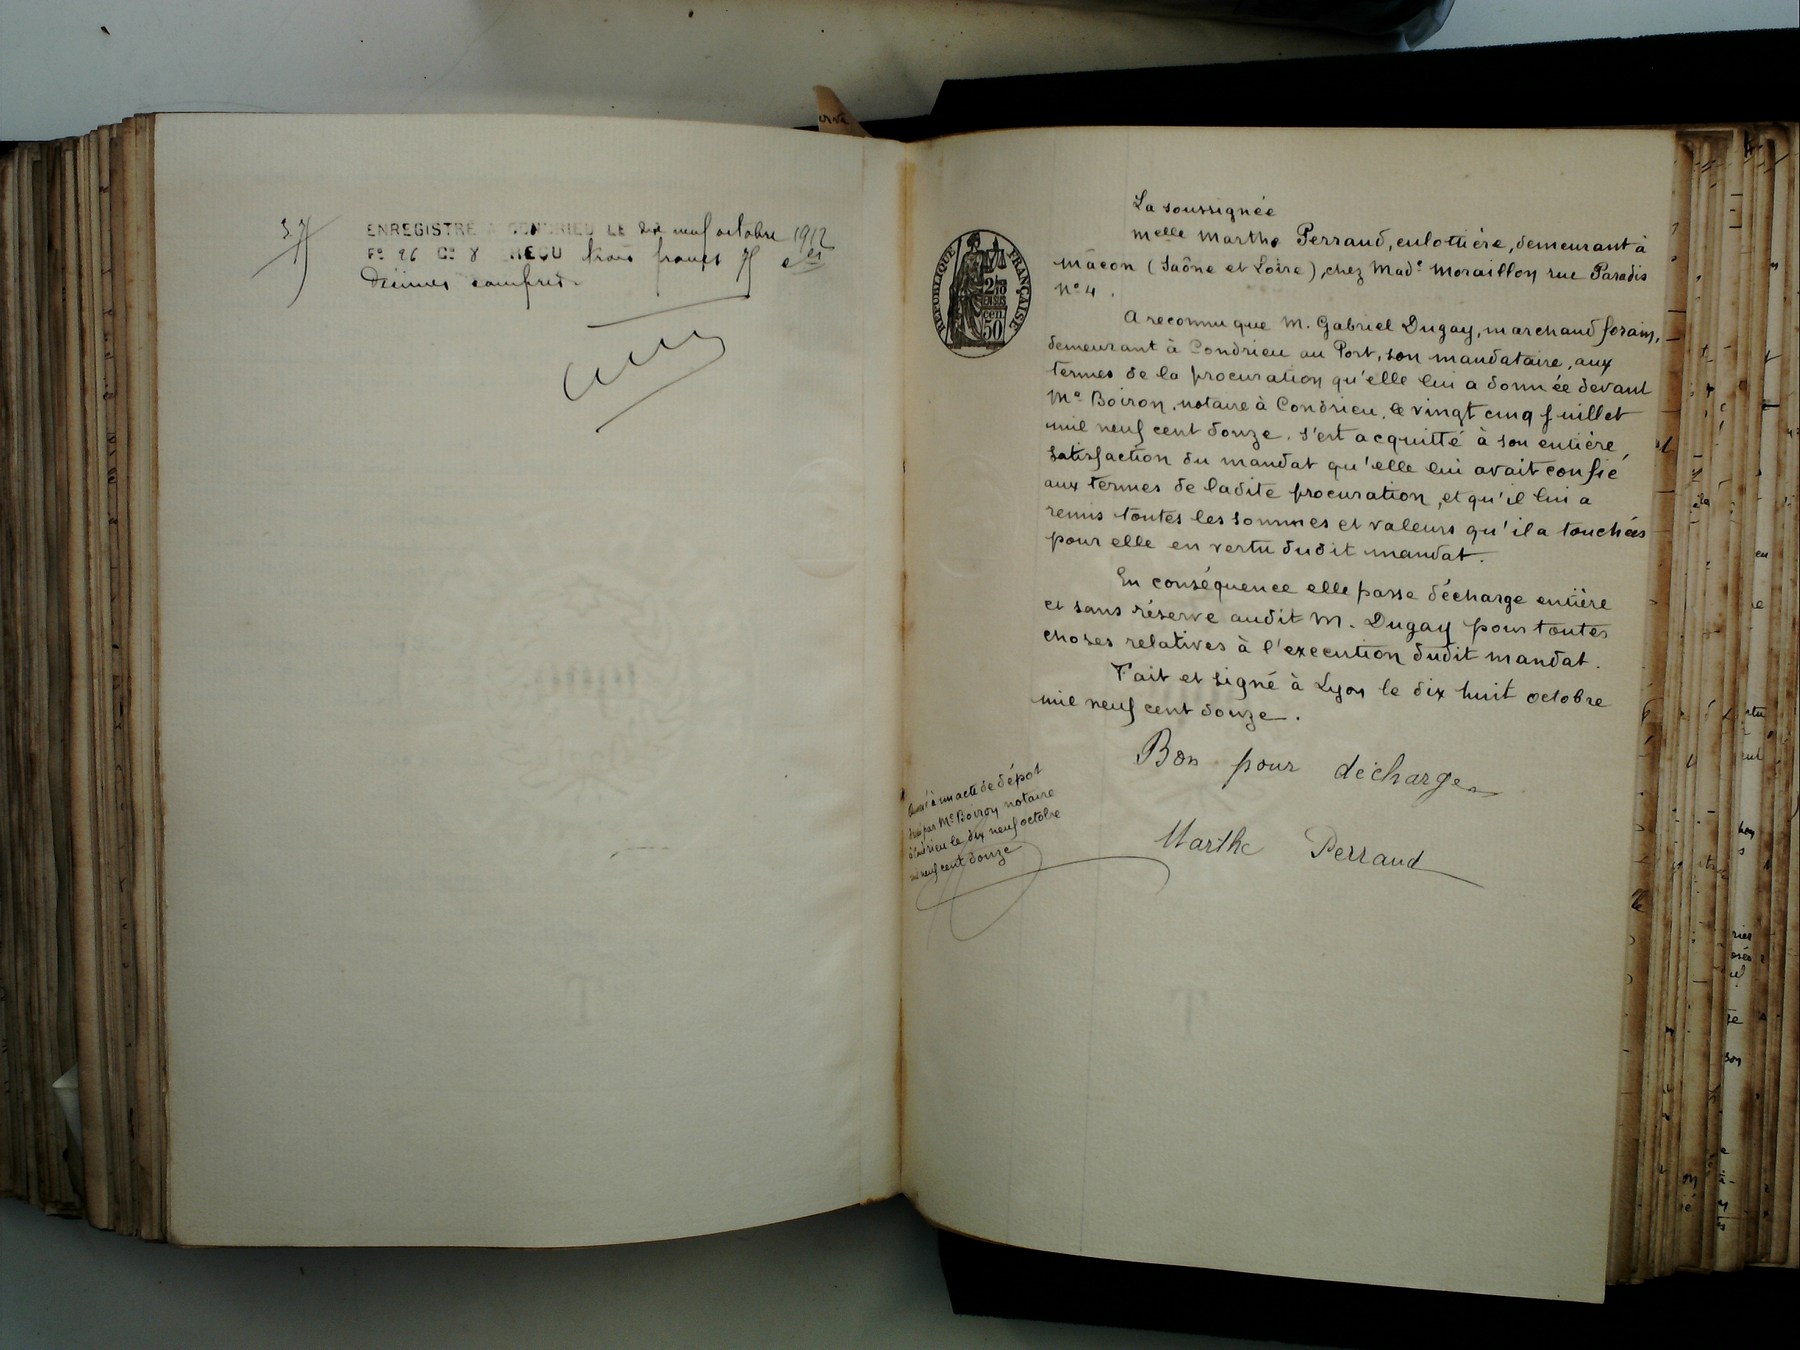 3.75
ENREGISTRÉ A CONDRIEU LE dix neuf octobre 1912
F° 26 C° 8 REÇU trois francs 75 ces
Décimes compris.
La soussignée
Melle Marthe Perraud, culottière, demeurant à
Mâcon (Saône et Loire), chez Made Moraillon rue Paradis
N° 4.
A reconnu que M. Gabriel Dugay, marchand forain,
demeurant à Condrieu au Port, son mandataire, aux
termes de la procuration qu'elle lui a donnée devant
Me Boiron, notaire à Condrieu, le vingt cinq juillet
mil neuf cent douze, s'est acquitté à son entière
satisfaction du mandat qu'elle lui avait confié
aux termes de ladite procuration, et qu'il lui a
remis toutes les sommes et valeurs qu'il a touchées
pour elle en vertu dudit mandat.
En conséquence elle passe décharge entière
et sans réserve audit M. Dugay pour toutes
choses relatives à l'execution dudit mandat.
Fait et signé à Lyon le dix huit octobre
mil neuf cent douze.
Bon pour décharge
Marthe Perraud
à un acte de dépot
par Me Boiron notaire
le dix neuf octobre
neuf cent douze
RÉPUBLIQUE FRANÇAISE
2/10
EN SUS
50 cen